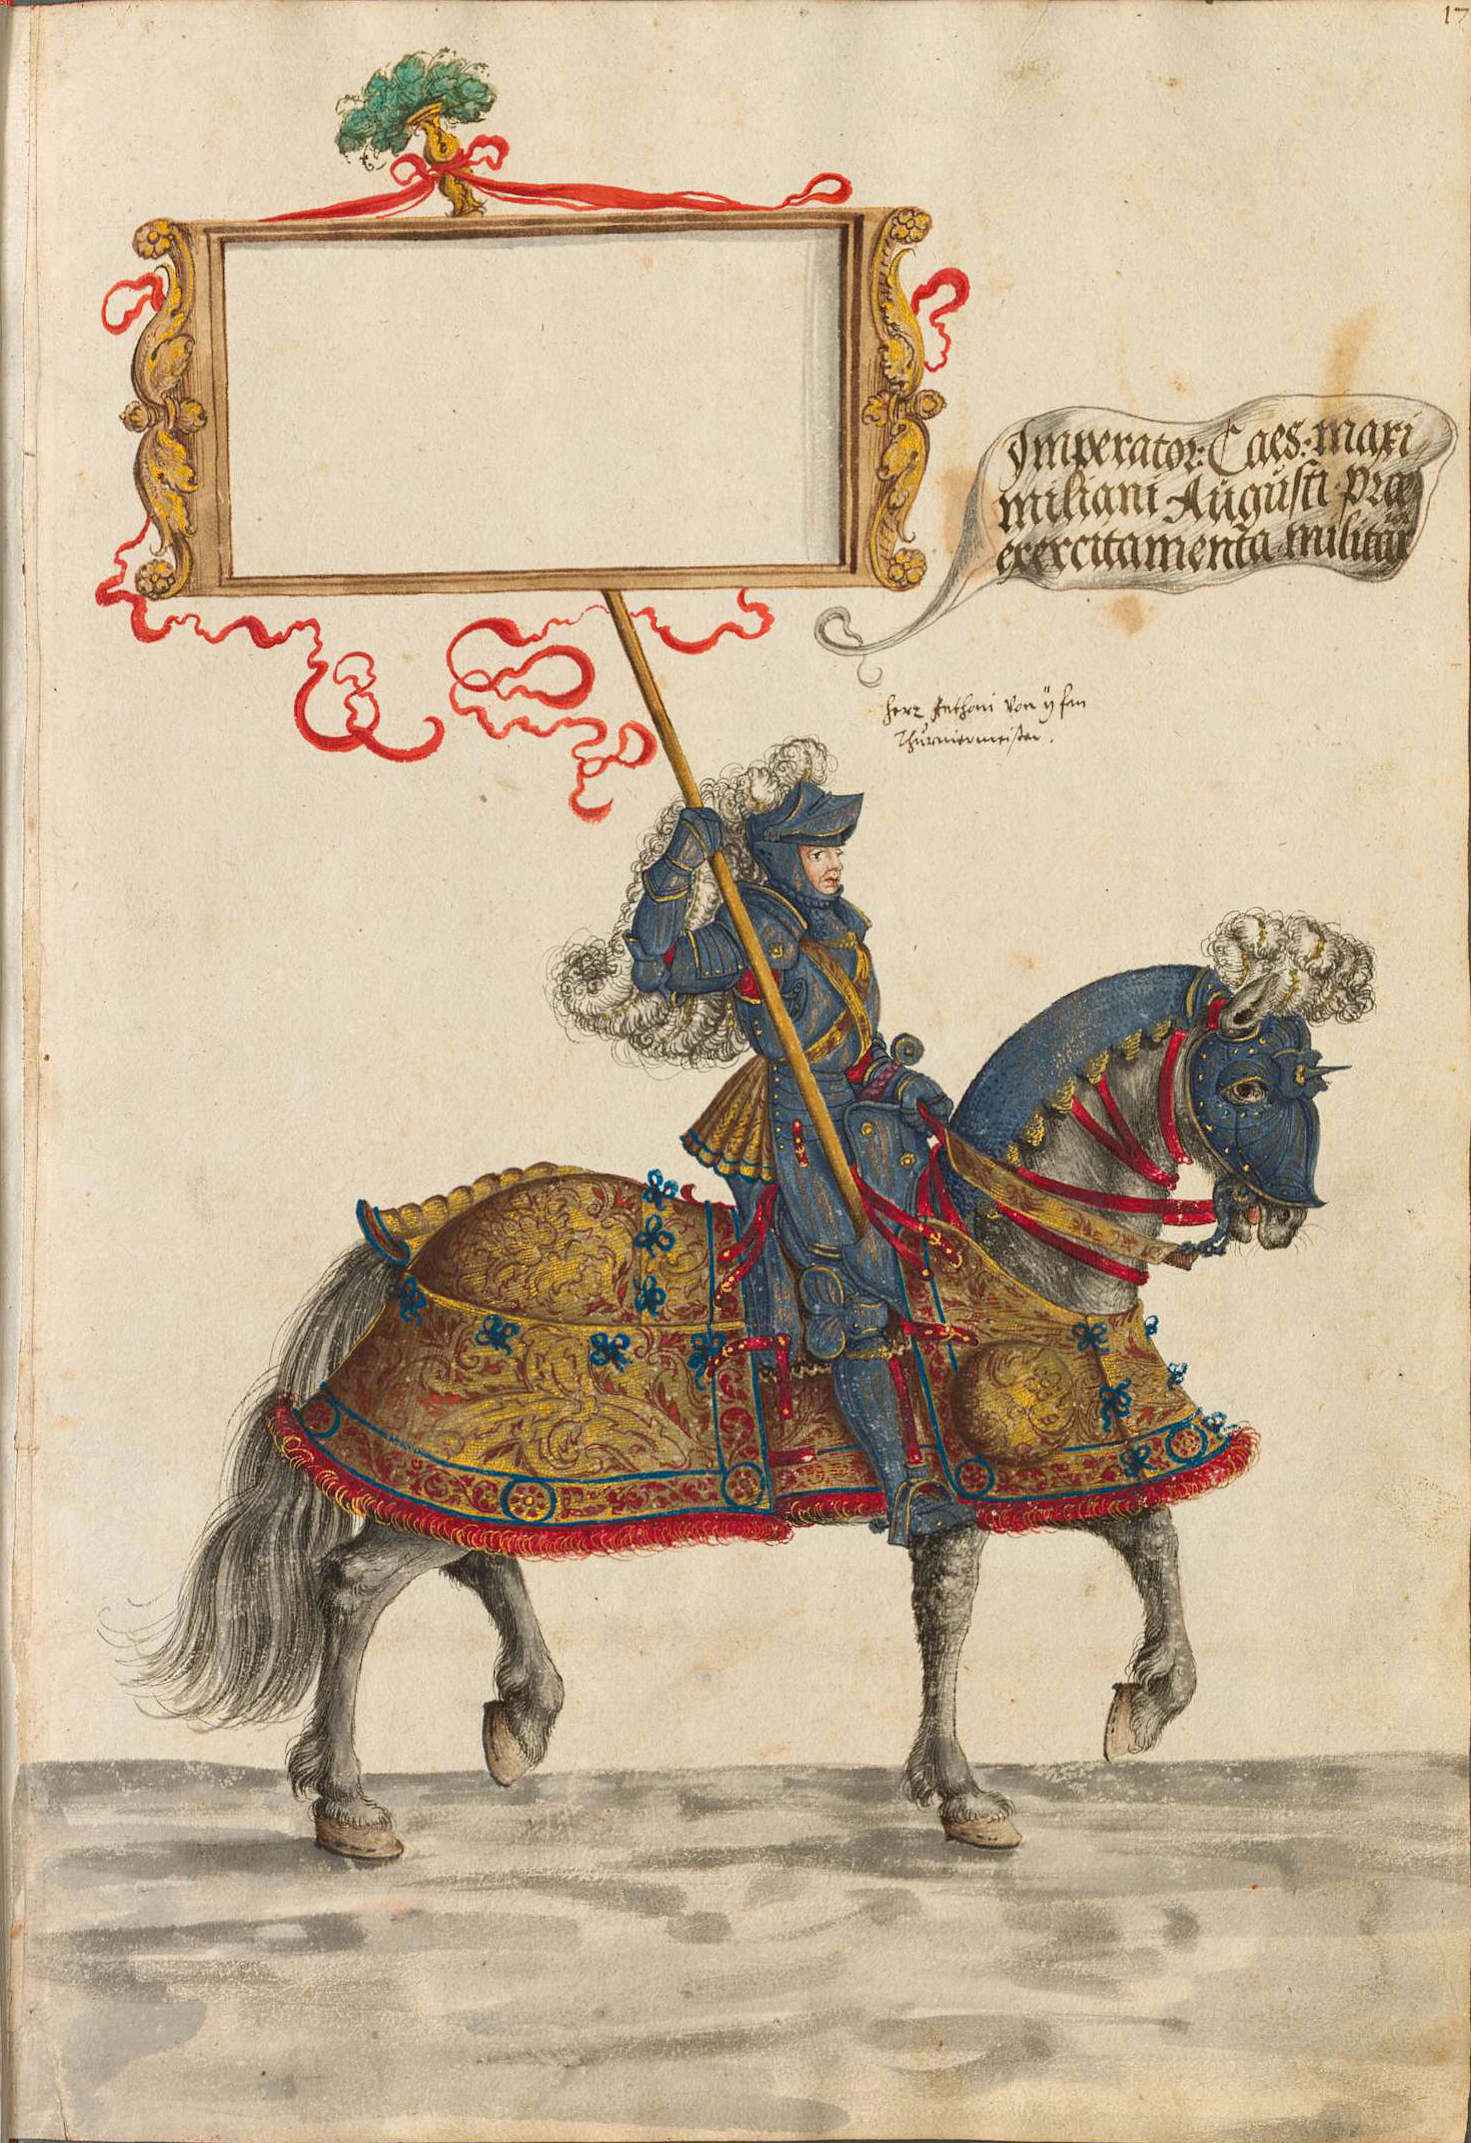 17
Imperator: Caes: maxi
miliani Augusti prae
exercitamenta militar
herr Anthoni von yfan
Thurniermeister.